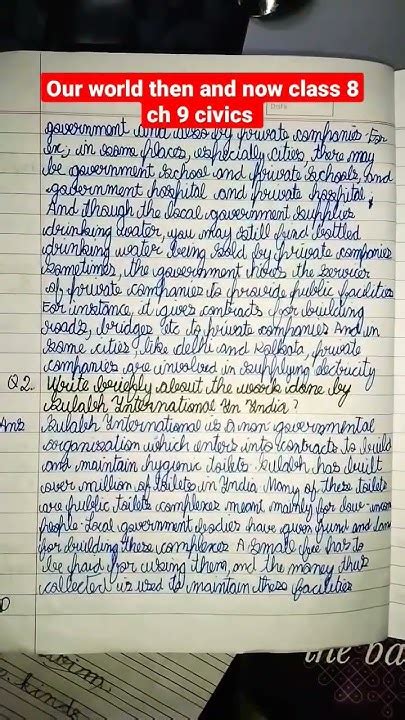 Our world then and now class 8
ch 9 civics
Date
government and also by private companies. For
ex; in some places, especially cities, there may
be government school and private schools, and
government hospital and private hospital,
And though the local government supplies
drinking water, you may still find bottled
drinking water being sold by private companies
sometimes, the government hires the services
of private companies to provide public facilities
For instance, it gives contracts for building
roads, bridges etc to private companies And in
some cities, like delhi and Kolkata, private
companies are involved in supplying electricity
Q2. Write briefly about the work done by
Sulabh International In India?
Ans Sulabh International is a non governmental
organisation which enters into contracts to build
and maintain hygienic toilets. Sulabh has built
over million of toilets in India. Many of these toilets
are public toilets complexes meant mainly for low-income
people. Local government bodies have given fund and land
for building these complexes A small fee has to
be paid for using them, and the money thus
collected is used to maintain these facilities
the ba
kinds